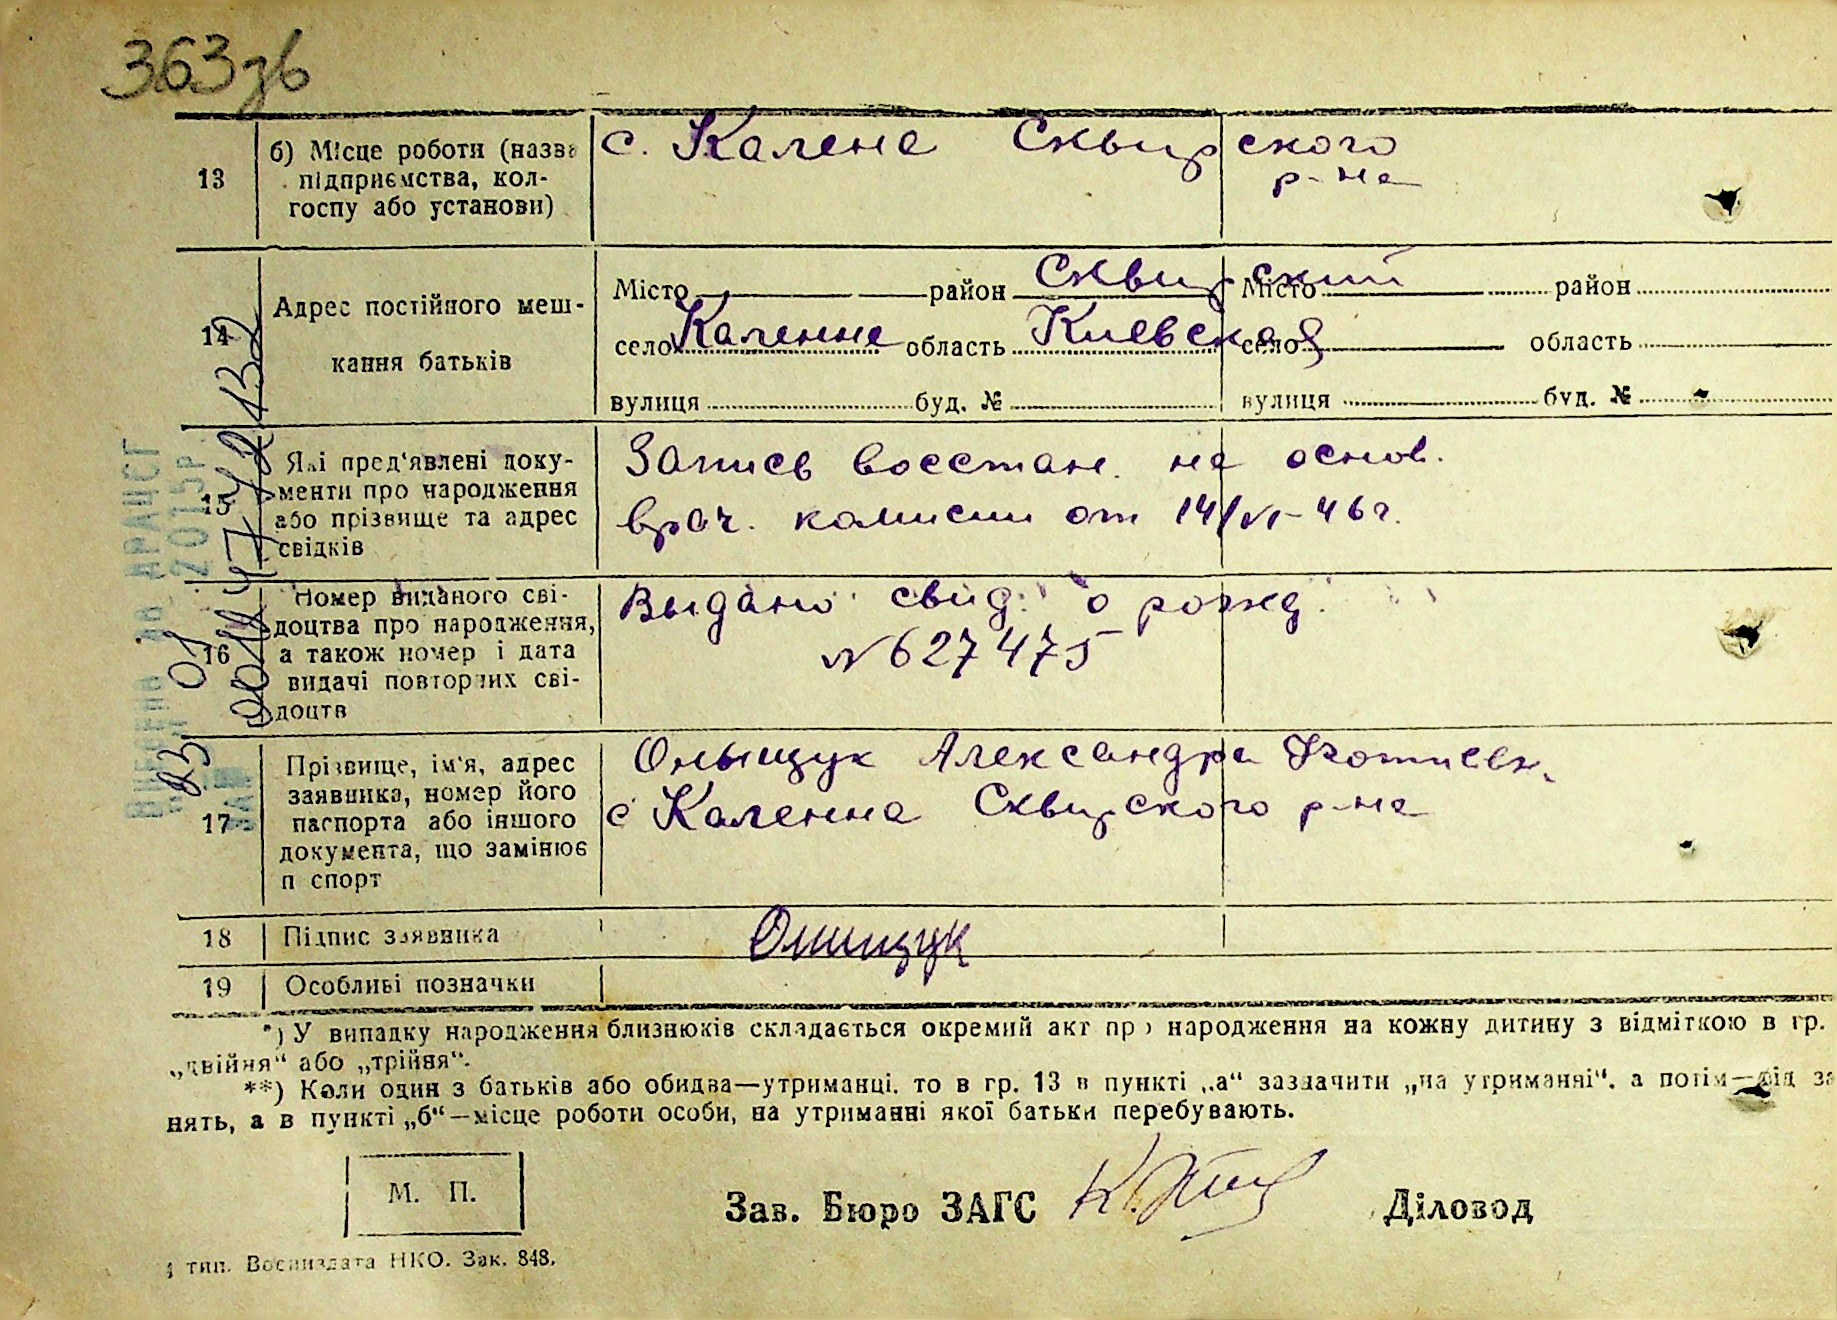 363 зв
13 б) Місце роботи (назва підприємства, колгоспу або установи)
с. Калена Сквирского
р-на
14 Адрес постійного мешкання батьків
Місто район Сквирский Місто район
село Каленна область Киевская село область
вулиця буд. № вулиця буд. №
15 Які пред'явлені документи про народження або прізвище та адрес свідків
Запись восстан. на основ.
врач. комисии от 14/VI-46г.
16 Номер виданого свідоцтва про народження, а також номер і дата видачі повторних свідоцтв
Выдано свид. о рожд.
№627475
17 Прізвище, ім'я, адрес заявника, номер його паспорта або іншого документа, що замінює п спорт
Александра
с Каленна Сквирского р-на
18 Підпис заявника
19 Особливі позначки
*) У випадку народження близнюків складається окремий акт пр народження на кожну дитину з відміткою в гр.
„двійня“ або „трійня“.
**) Коли один з батьків або обидва—утриманці, то в гр. 13 в пункті „а“ зазначити „на утриманні“, а потім—рід за
нять, а в пункті „б“—місце роботи особи, на утриманні якої батьки перебувають.
М. П.
Зав. Бюро ЗАГС Діловод
тип. Воениздата НКО. Зак. 848.